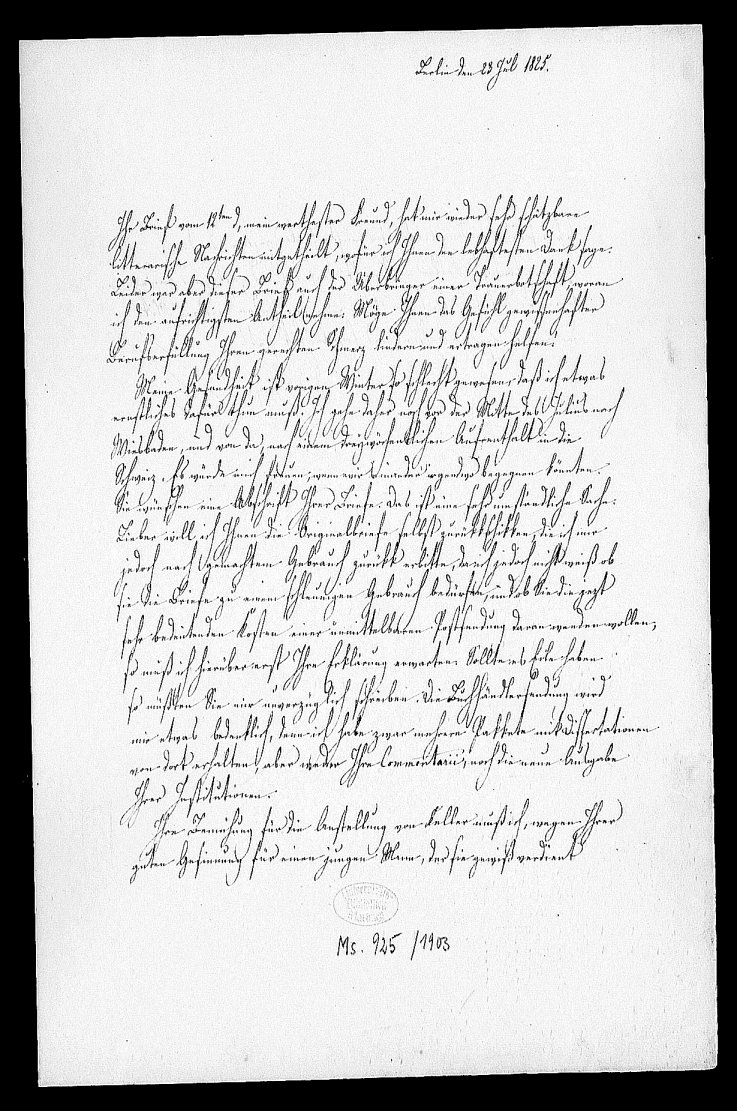 Berlin den 23 Jul 1825.
Ihr Brief vom 12ten d, mein werthester Freund, hat mir wieder sehr schätzbare
litterarische Nachrichten mitgetheilt, wofür ich Ihnen den lebhaftesten Dank sage.
Leider war aber dieser Brief auch der Überbringer einer Trauerbotschaft, woran
ich den aufrichtigsten Antheil nehme. Möge Ihnen das Gefühl gewissenhafter
Berufserfüllung Ihren gerechten Schmerz lindern und ertragen helfen.
Meine Gesundheit ist vorigen Winter so schlecht gewesen, daß ich etwas
ernstliches dafür thun muß. Ich gehe daher noch vor der Mitte des Julius nach
Wiesbaden, und von da, nach einem dreywöchentlichen Aufenthalt in die
Schweiz. Es würde mich freuen, wenn wir einander irgendwo begegnen könnten.
Sie wünschen eine Abschrift Ihrer Briefe. Das ist eine sehr umständliche Sache.
Lieber will ich Ihnen die Originalbriefe selbst zurückschikken, die ich mir
jedoch nach gemachtem Gebrauch zurükk erbitte, da ich jedoch nicht weiß ob
sie die Briefe zu einem schleunigen Gebrauch bedürfen, und ob Sie die jezt
sehr bedeutenden Kosten einer unmittelbaren Postsendung daran wenden wollen,
so muß ich hierüber erst Ihre Erklärung erwarten. Sollte es Eile haben
so müßten Sie mir unverzüglich schreiben. Die Buchhändlersendung wird
mir etwas bedenklich, denn ich habe zwar mehrere Pakkete mit Dissertationen
von dort erhalten, aber weder Ihre Commentarii, noch die neue Ausgabe
Ihrer Institutionen.
Ihre Bemühung für die Anstellung von Keller muß ich, wegen Ihrer
guten Gesinnung für einen jungen Mann, der sie gewiß verdient
Ms. 925 /1903